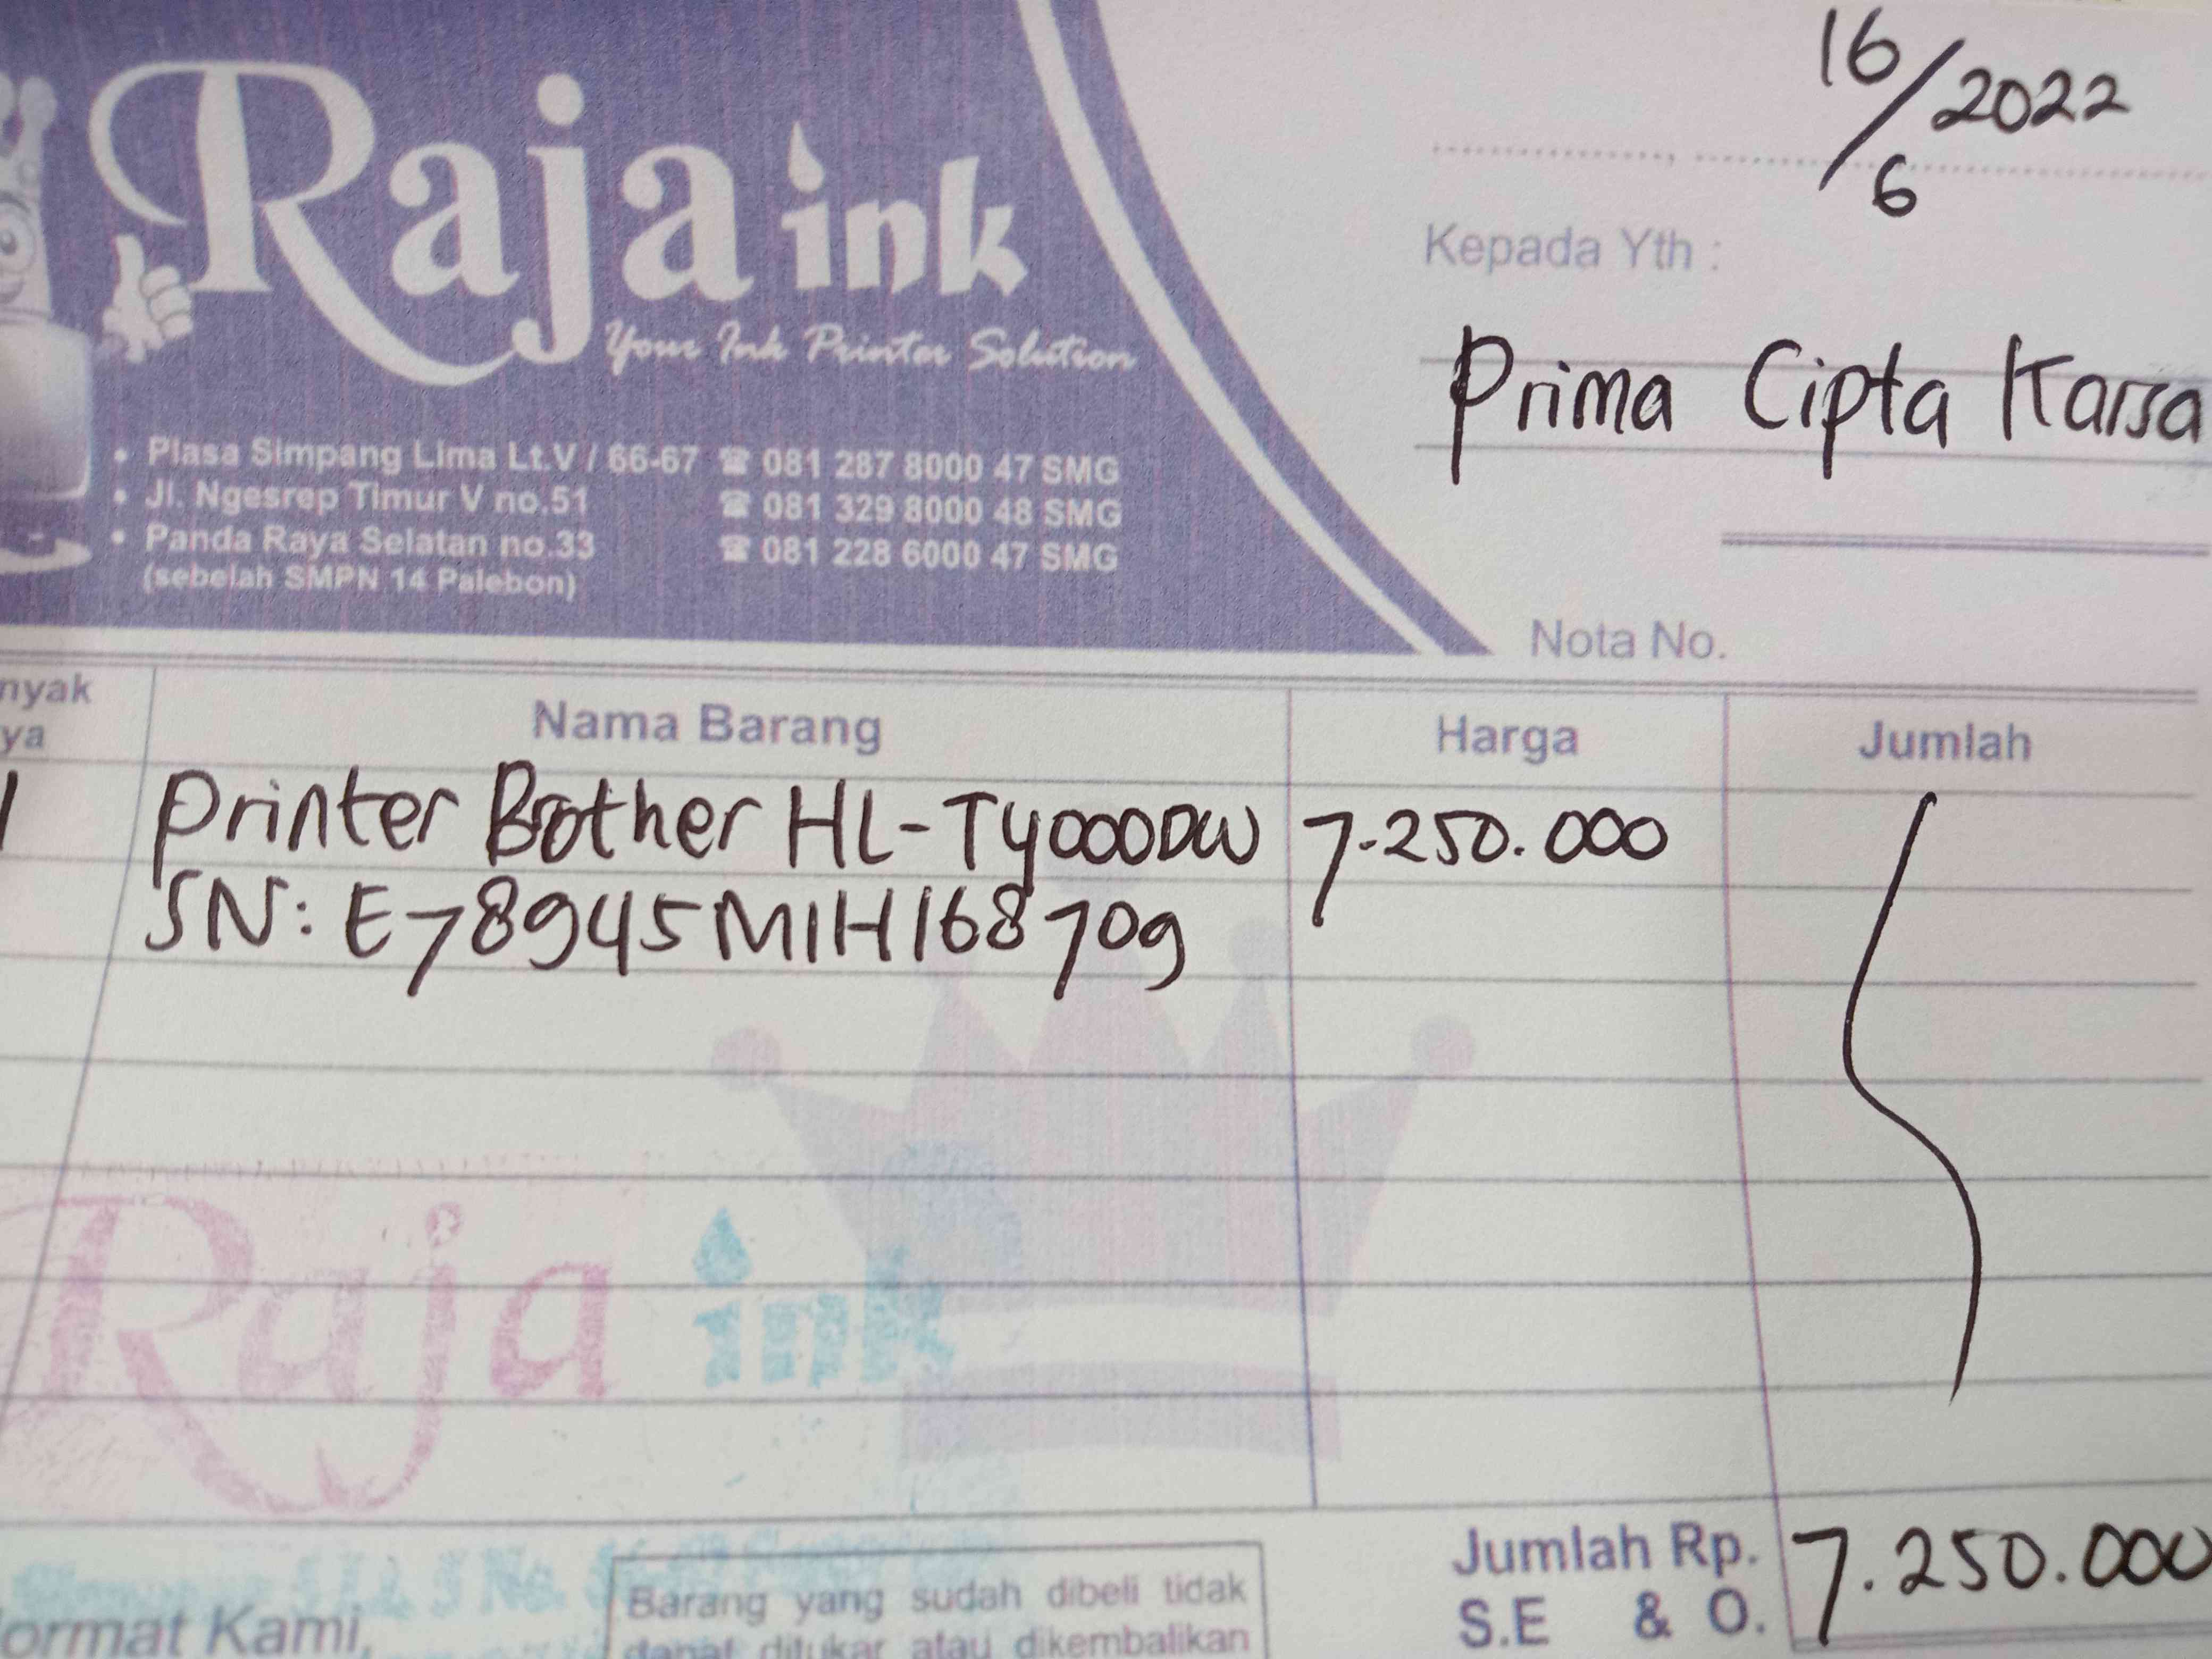 16/6/2022
Raja ink
Your Ink Printer Solution
Kepada Yth :
Prima Cipta Karsa
• Plasa Simpang Lima Lt.V / 66-67 ☎ 081 287 8000 47 SMG
• Jl. Ngesrep Timur V no.51 ☎ 081 329 8000 48 SMG
• Panda Raya Selatan no.33 ☎ 081 228 6000 47 SMG
(sebelah SMPN 14 Palebon)
Nota No.
nyak
ya
Nama Barang Harga Jumlah
1 Printer Brother HL-T4000DW 7.250.000
SN: E78945M1H168709
Raja ink
Jumlah Rp. 7.250.000
S.E & O.
ormat Kami,
Barang yang sudah dibeli tidak
dapat ditukar atau dikembalikan